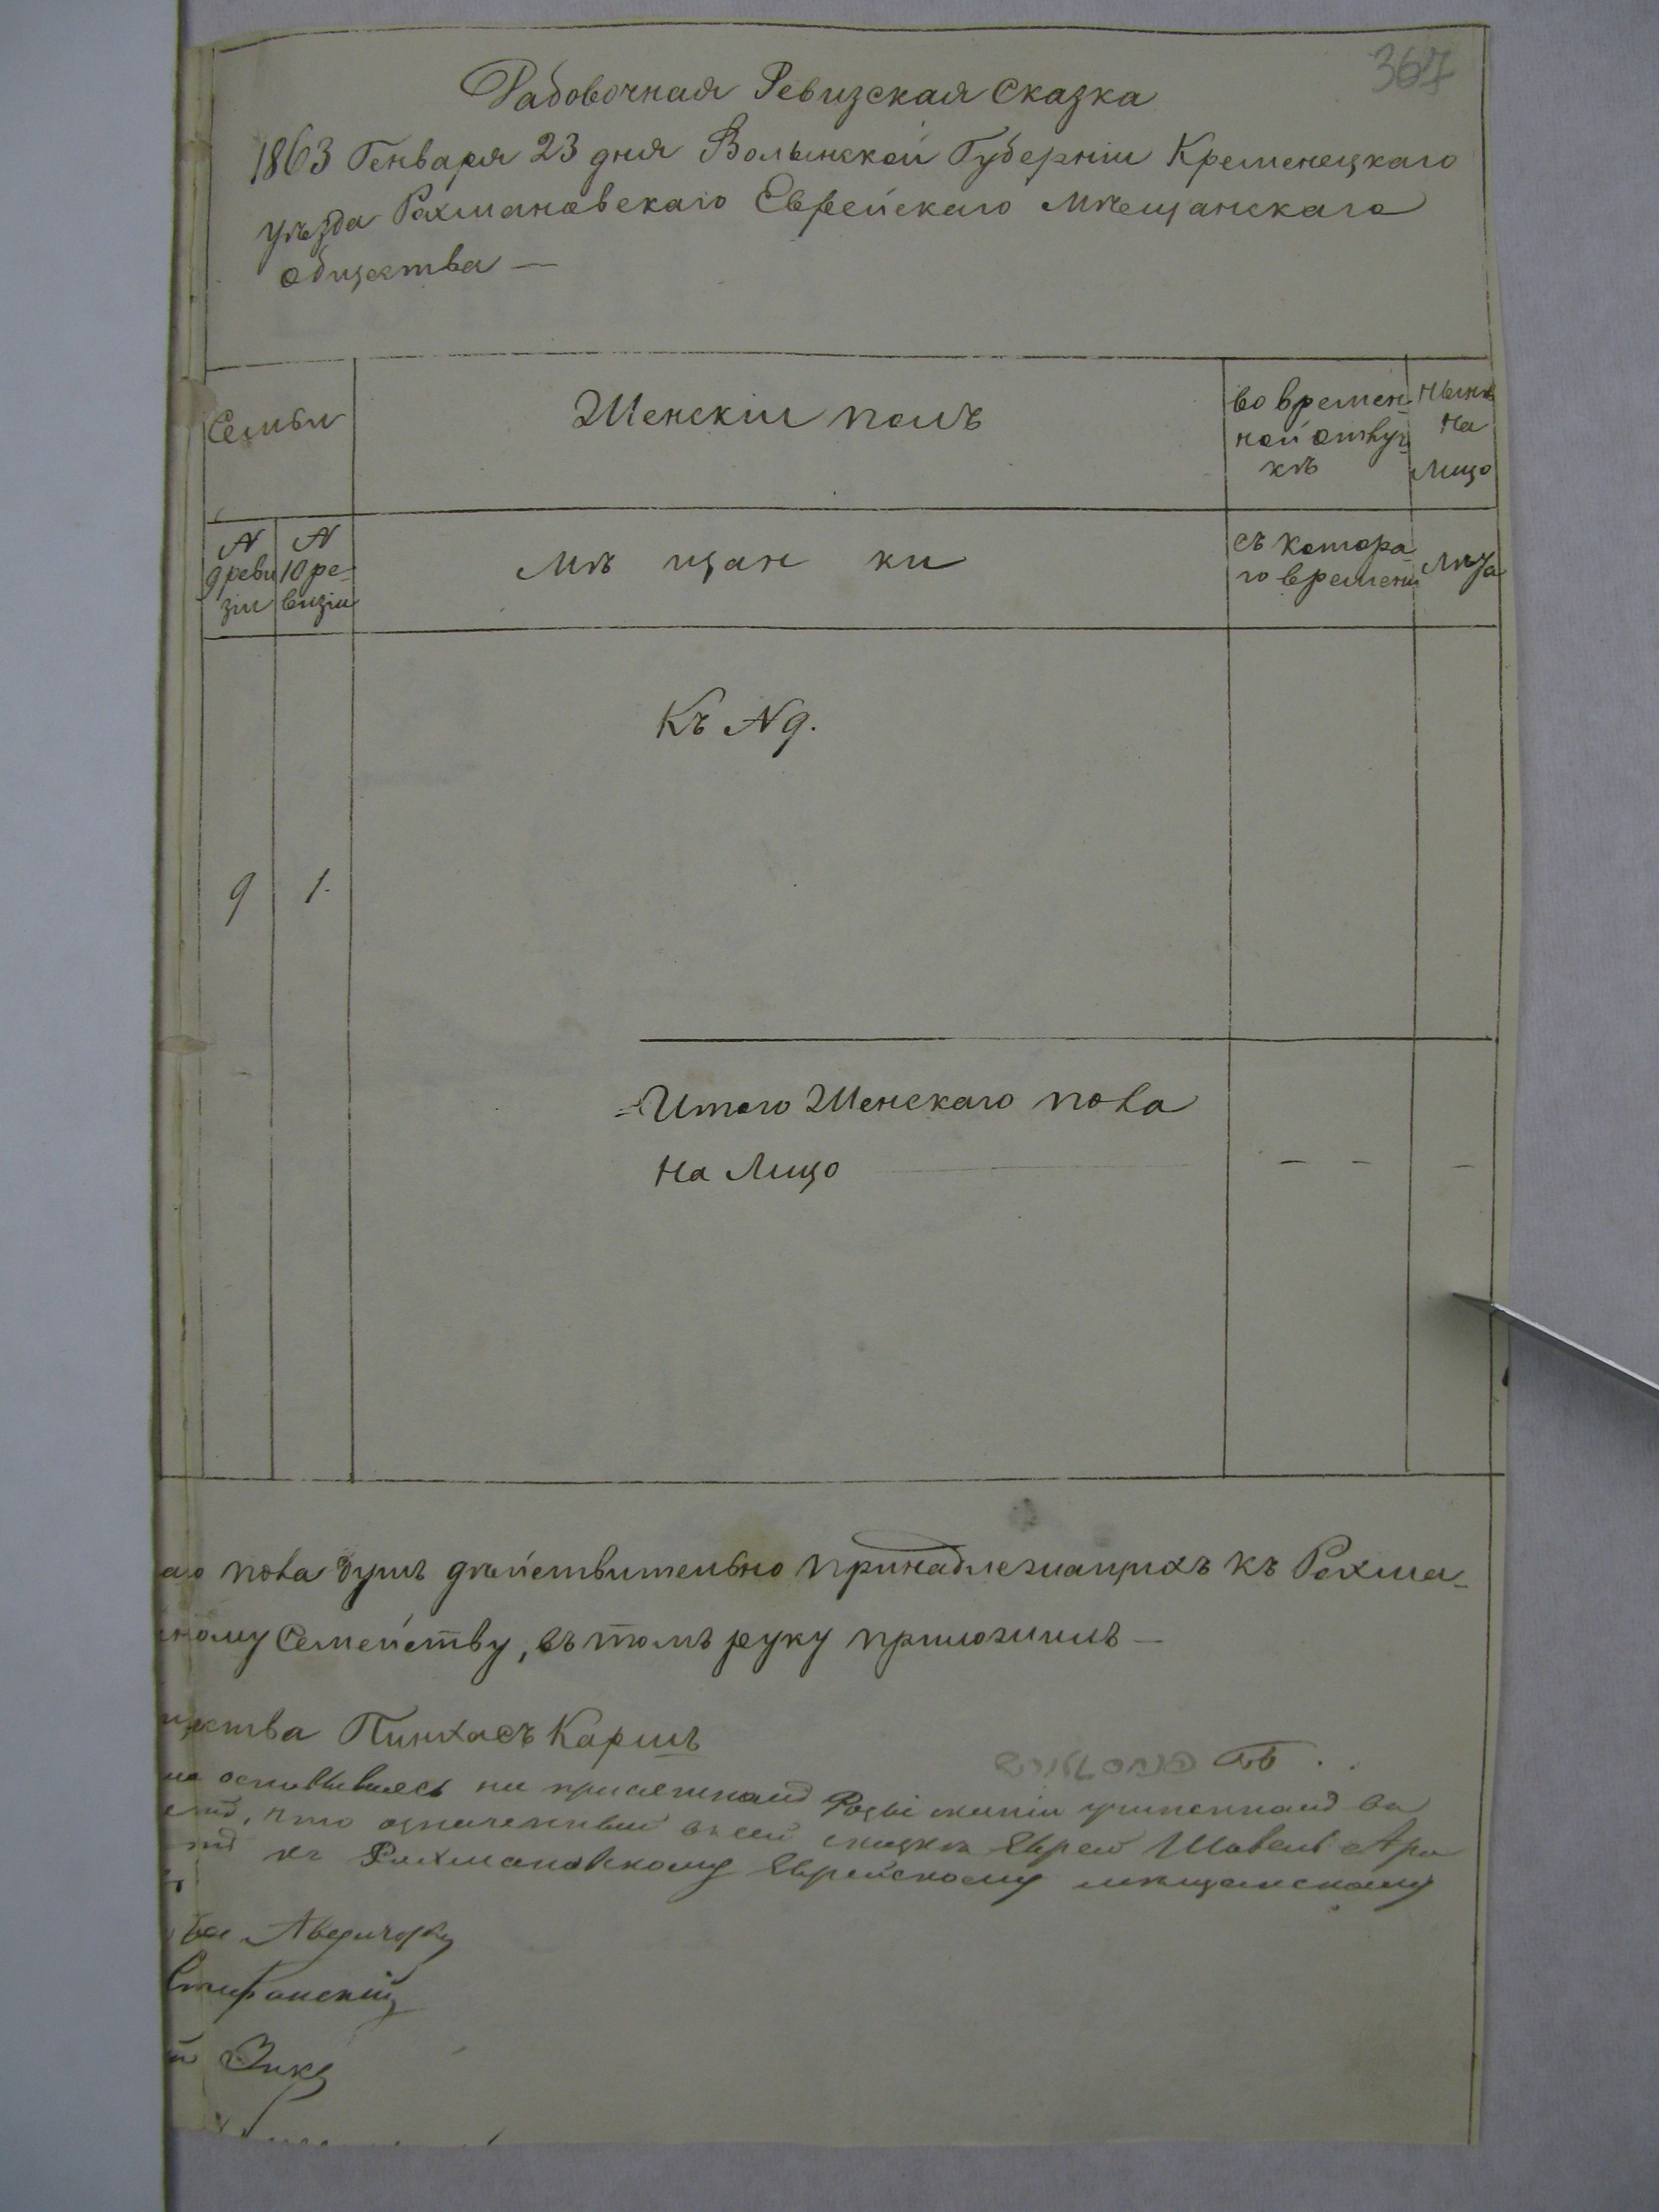 367
Рабовочная Ревизская Сказка
1863 Генваря 23 дня Волынской Губернiи Кременецкаго
уѣзда Рахмановскаго Еврейскаго Мѣщанскаго
общества —
Семьи
Женскiй полъ
во времен-
ной отлуч-
кѣ
Нынѣ
на
Лицо
N
9 реви
зiи
N
10 ре-
визiи
Мѣ щан ки
съ котора
го времени
Лѣта
Къ N 9.
9 1.
Итого Женскаго пола
на Лицо — — —
аго пола душъ дѣйствительно принадлежащихъ къ Рахма-
ному Семейству, въ томъ руку приложилъ —
щества Пинхасъ Каришъ
на основывшись на
что означенный въ сей сказкѣ Еврей Шовель Аро
къ Рахмановскому Еврейскому мѣщанскому